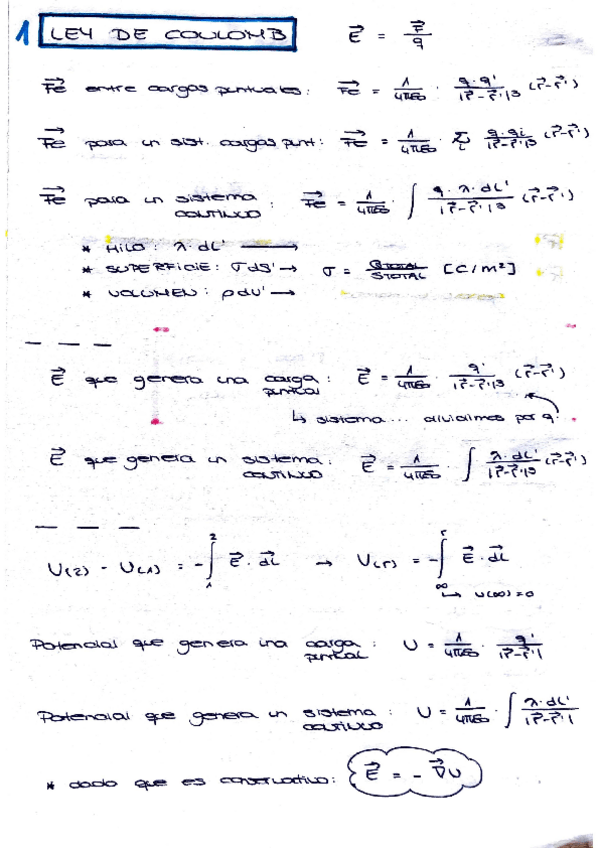 1 LEY DE COULOMB E⃗ = F⃗/q
F⃗e entre cargas puntuales: F⃗e = 1/4πε0 · q·q'/|r⃗-r⃗'|3 (r⃗-r⃗')
F⃗e para un sist. cargas punt: F⃗e = 1/4πε0 · Σi q·qi/|r⃗-r⃗'|3 (r⃗-r⃗')
F⃗e para un sistema CONTINUO: F⃗e = 1/4πε0 · ∫ q·λ·dL'/|r⃗-r⃗'|3 (r⃗-r⃗')
* HILO: λ·dL' →
* SUPERFICIE: σdS' → σ = QTOTAL/STOTAL [C/m²]
* VOLUMEN: ρdV' →
E⃗ que genera una carga puntual: E⃗ = 1/4πε0 · q'/|r⃗-r⃗'|3 (r⃗-r⃗')
↳ sistema... dividimos por q.
E⃗ que genera un sistema CONTINUO: E⃗ = 1/4πε0 · ∫ λ·dL'/|r⃗-r⃗'|3 (r⃗-r⃗')
U(2) - U(1) = -∫₁² E⃗·dL⃗ → U(r) = -∫∞ʳ E⃗·dL⃗
↳ U(∞)=0
Potencial que genera una carga puntual: U = 1/4πε0 · q'/|r⃗-r⃗'|
Potencial que genera un sistema CONTINUO: U = 1/4πε0 · ∫ λ·dL'/|r⃗-r⃗'|
* dado que es conservativo: E⃗ = -∇⃗U